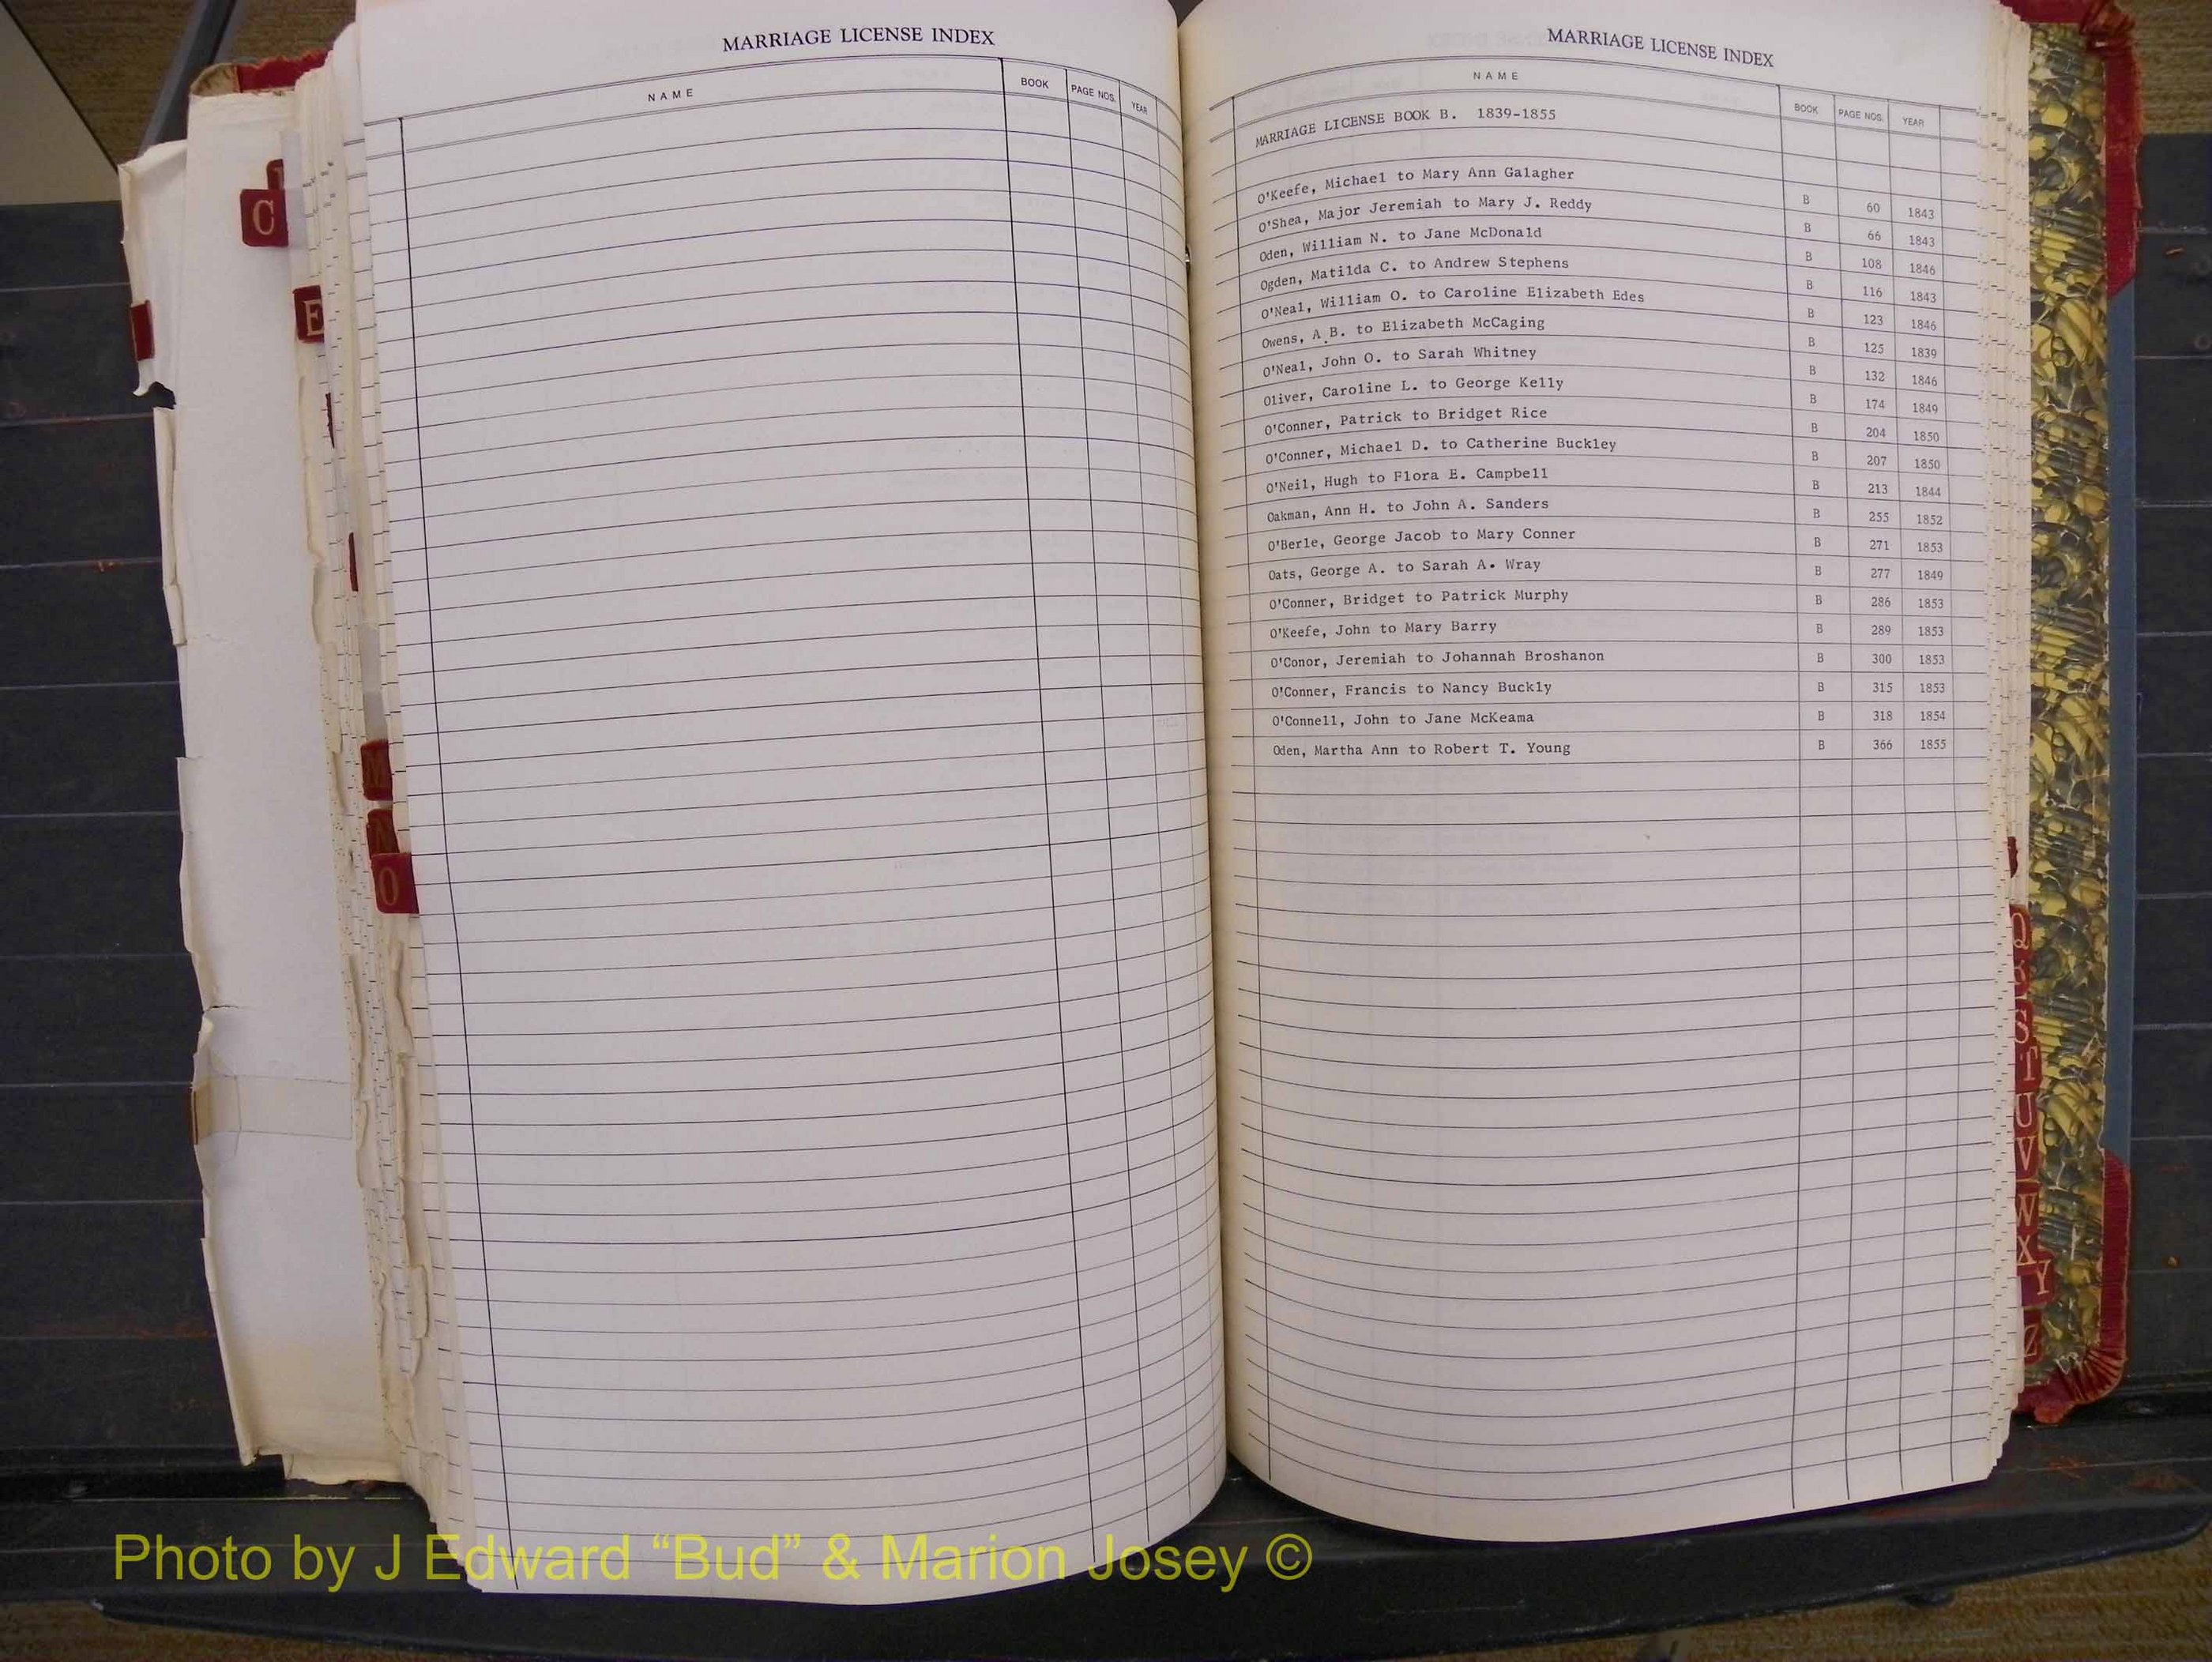 MARRIAGE LICENSE INDEX
NAME BOOK PAGE NOS. YEAR
MARRIAGE LICENSE INDEX
NAME BOOK PAGE NOS. YEAR
MARRIAGE LICENSE BOOK B. 1839-1855
O'Keefe, Michael to Mary Ann Galagher B 60 1843
O'Shea, Major Jeremiah to Mary J. Reddy B 66 1843
Oden, William N. to Jane McDonald B 108 1846
Ogden, Matilda C. to Andrew Stephens B 116 1843
O'Neal, William O. to Caroline Elizabeth Edes B 123 1846
Owens, A.B. to Elizabeth McCaging B 125 1839
O'Neal, John O. to Sarah Whitney B 132 1846
Oliver, Caroline L. to George Kelly B 174 1849
O'Conner, Patrick to Bridget Rice B 204 1850
O'Conner, Michael D. to Catherine Buckley B 207 1850
O'Neil, Hugh to Flora E. Campbell B 213 1844
Oakman, Ann H. to John A. Sanders B 255 1852
O'Berle, George Jacob to Mary Conner B 271 1853
Oats, George A. to Sarah A. Wray B 277 1849
O'Conner, Bridget to Patrick Murphy B 286 1853
O'Keefe, John to Mary Barry B 289 1853
O'Conor, Jeremiah to Johannah Broshanon B 300 1853
O'Conner, Francis to Nancy Buckly B 315 1853
O'Connell, John to Jane McKeama B 318 1854
Oden, Martha Ann to Robert T. Young B 366 1855
C
E
M
N
O
Q
R
S
T
U
V
W
X
Y
Z
Photo by J Edward “Bud” & Marion Josey ©